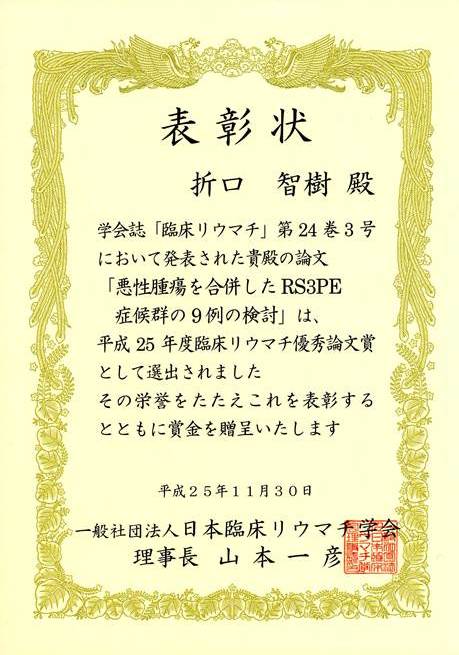 表彰状
折口 智樹 殿
学会誌「臨床リウマチ」第24巻3号
において発表された貴殿の論文
「悪性腫瘍を合併したRS3PE
症候群の9例の検討」は、
平成25年度臨床リウマチ優秀論文賞
として選出されました
その栄誉をたたえこれを表彰する
とともに賞金を贈呈いたします
平成25年11月30日
一般社団法人日本臨床リウマチ学会
理事長 山本一彦